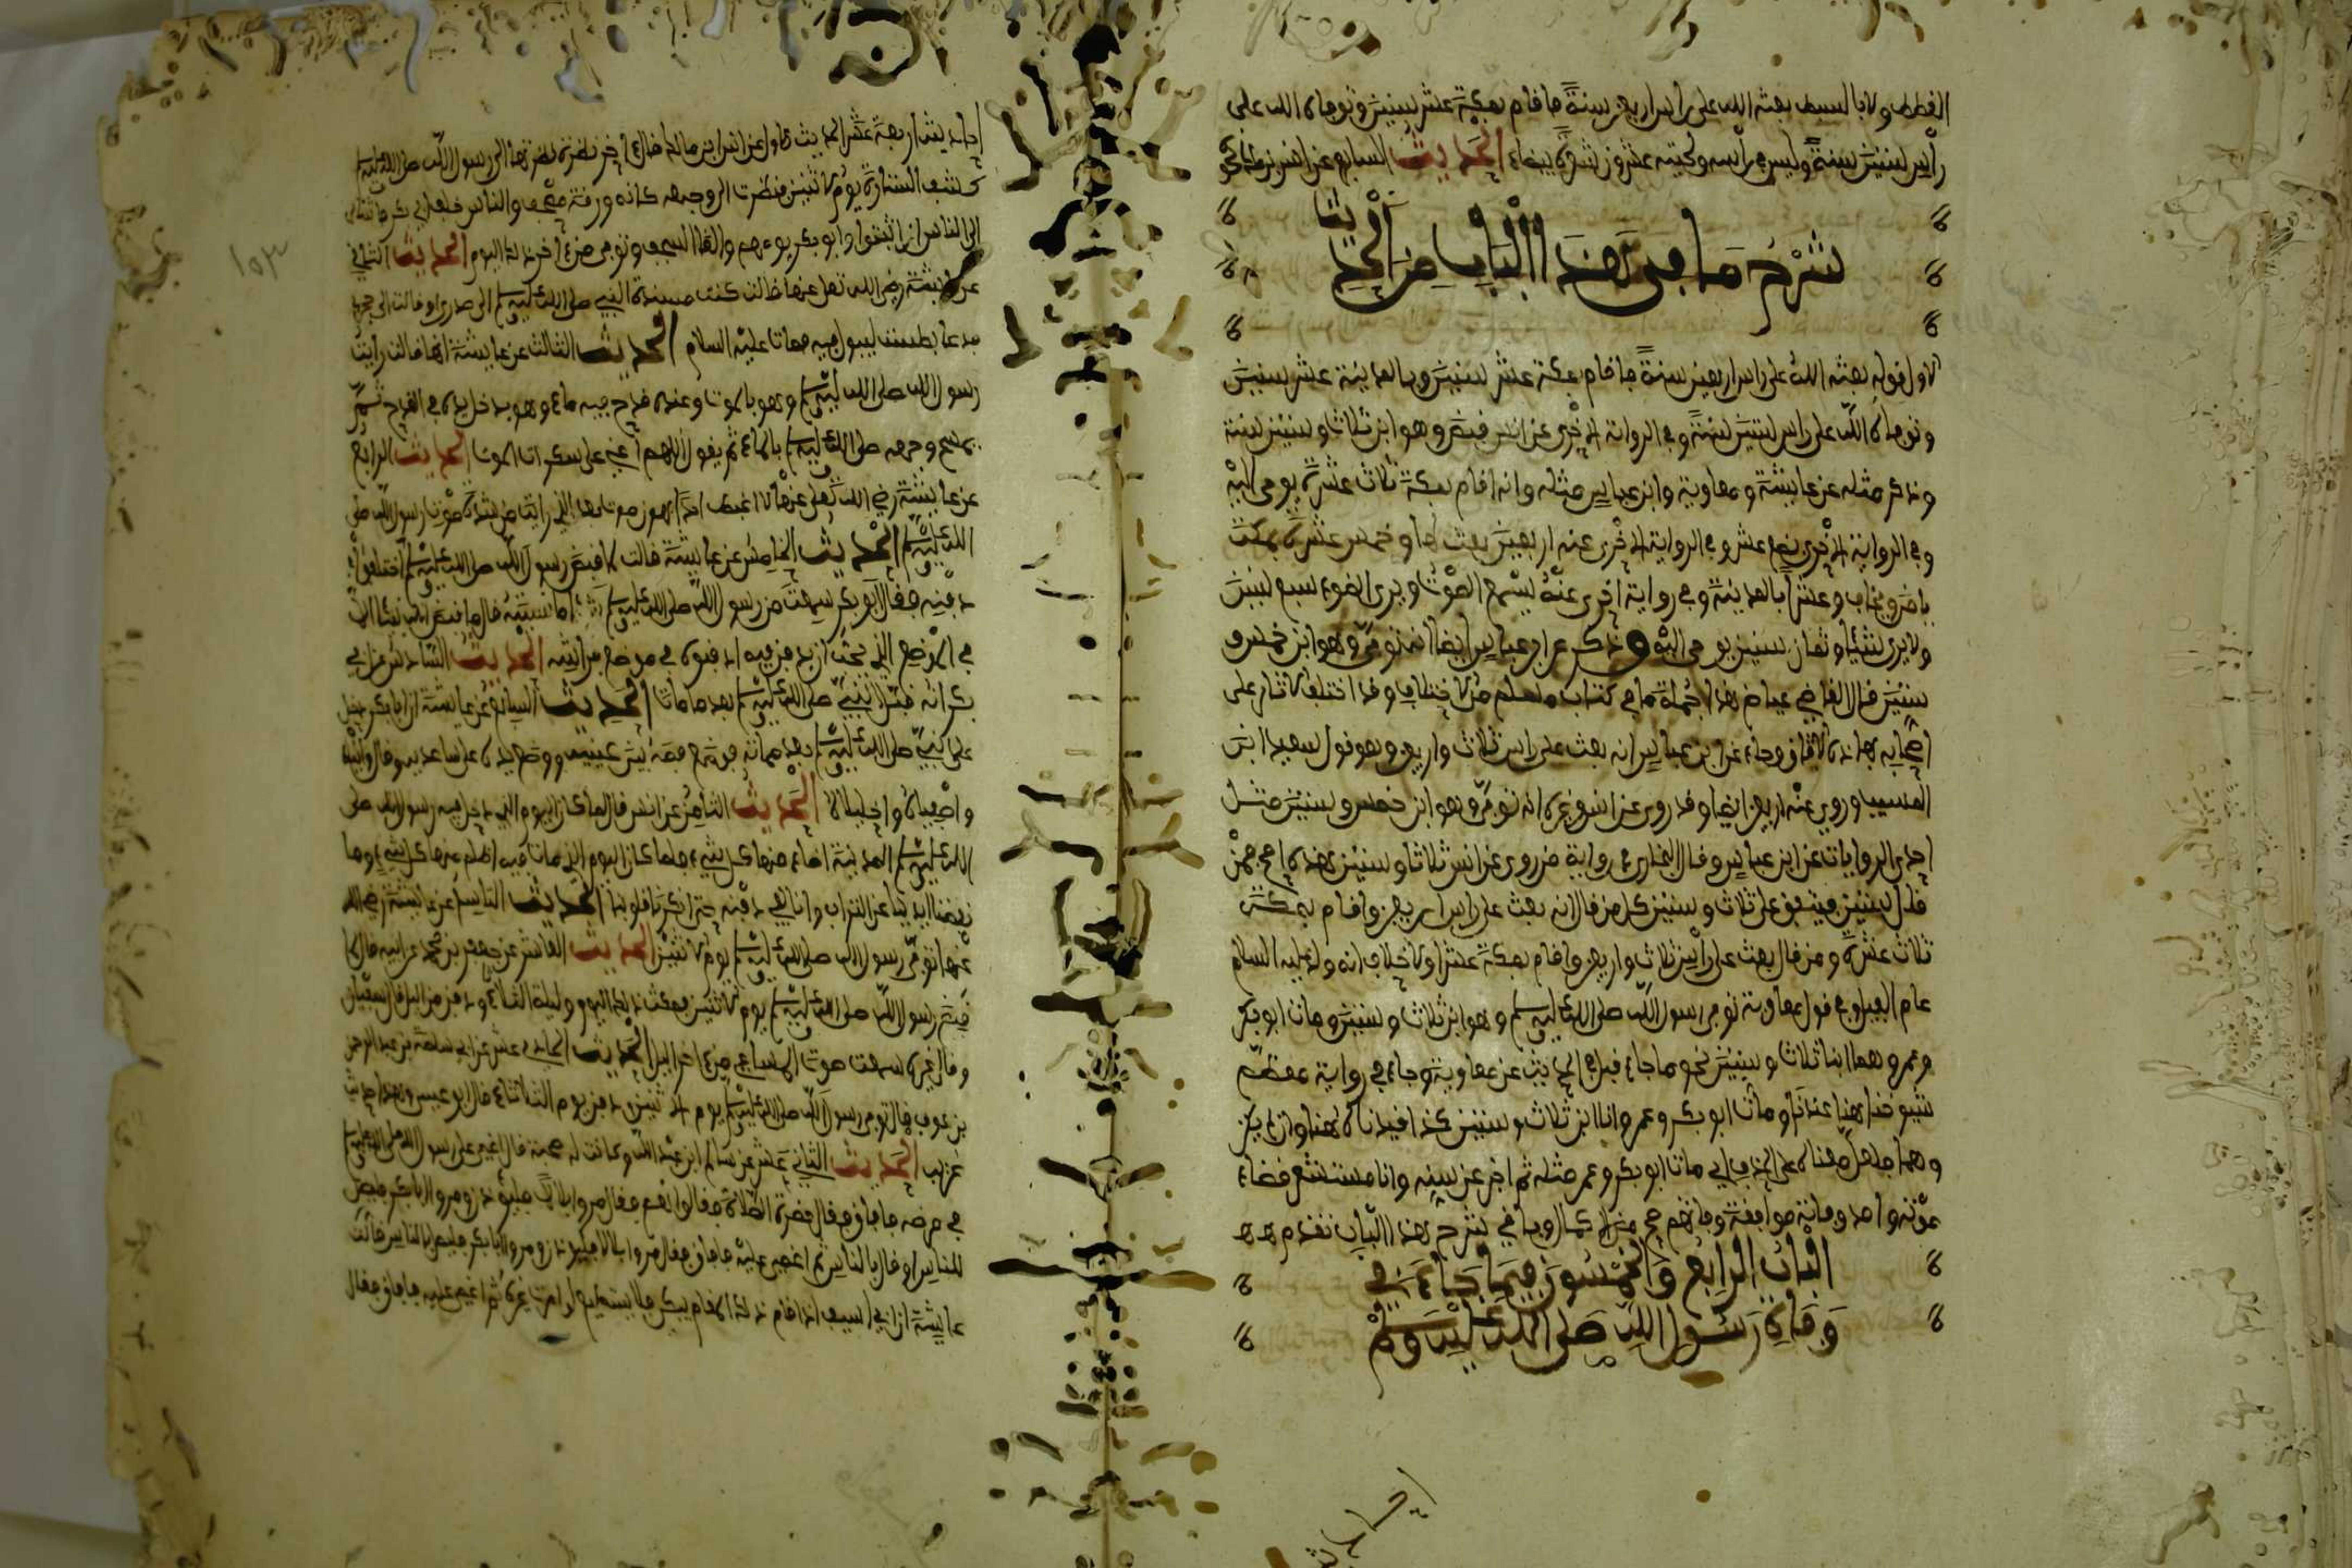 القطط ولا بالسبط بعثه الله على راس اربعين سنة فاقام بمكة عشر سنين وتوفاه الله على
رأس ستين سنة وليس في رأسه ولحيته عشرون شعرة بيضاء الحديث السابع عن انس بن مالك نحوه
شرح ما في هذا الباب من الحديث
الاول قوله بعثه الله على راس اربعين سنة فاقام بمكة عشر سنين وبالمدينة عشر سنين
وتوفاه الله على راس ستين سنة وفي الرواية الاخرى عن انس قبض وهو ابن ثلاث وستين سنة
وذكر مثله عن عايشة ومعاوية وابن عباس مثله وانه اقام بمكة ثلاث عشرة يوحى اليه
وفي الرواية الاخرى بضع عشر وفي الرواية الاخرى عنه اربعين بعث لها وخمس عشرة بمكة
يامن ويخاف وعشرا بالمدينة وفي رواية اخرى عنه يسمع الصوت ويرى الضوء سبع سنين
ولا يرى شيئا وثمان سنين يوحى اليه وذكر عن ابن عباس ايضا انه توفي وهو ابن خمس و
ستين قال القاضي عياض هذا جملة ما في كتاب مسلم من الاختلاف وقد اختلف الاثار على
اصحابه بهذه الالفاظ وجاء عن ابن عباس انه بعث على راس ثلاث واربعين وهو قول سعيد ابن
المسيب وروي عنه اربعين ايضا وقد روي عن انس وغيره انه توفي وهو ابن خمس وستين مثل
احدى الروايات عن ابن عباس وقال البخاري في رواية من روى عن انس ثلاثا وستين هذه اصح فمن
قال ستين فيتفق على ثلاث وستين كل من قال انه بعث على راس اربعين واقام بمكة
ثلاث عشرة ومن قال بعث على رأس ثلاث واربعين واقام بمكة عشرا ولا خلاف انه ولد عليه السلام
عام الفيل وفي قول معاوية توفي رسول الله صلى الله عليه وسلم وهو ابن ثلاث وستين ومات ابو بكر
وعمر وهما ابنا ثلاث وستين نحو ما جاء قبل في الحديث عن معاوية وجاء في رواية معظم
شيوخنا هنا عندنا ومات ابو بكر وعمر وانا ابن ثلاث وستين كذا قيدناه هنا
مات ابو بكر وعمر مثله ثم اخبر عن سنه وانا مستشعر قضاء
موته وباقي شرح هذا الباب تقدم هـ هـ
الباب الرابع والخمسون فيما جاء في
وفاة رسول الله صلى الله عليه وسلم
احاديث
١٥٣
احاديث اربعة عشر الحديث الاول عن انس ابن مالك قال اخر نظرة نظرتها الى رسول الله صلى الله عليه وسلم
كشف الستارة يوم الاثنين فنظرت الى وجهه كانه ورقة مصحف والناس خلف ابي بكر فاشار
الى الناس ان اثبتوا وابو بكر يومهم والقى السجف وتوفي من اخر ذلك اليوم الحديث الثاني
عن عايشة رضي الله تعلى عنها قالت كنت مسندة النبي صلى الله عليه وسلم الى صدري او قالت الى حجري
فدعا بطست ليبول فيه فمات عليه السلام الحديث الثالث عن عايشة انها قالت رايت
رسول الله صلى الله عليه وسلم وهو بالموت وعنده قدح فيه ماء وهو يدخل يده في القدح ثم
يمسح وجهه صلى الله عليه وسلم بالماء ثم يقول اللهم اعني على سكرات الموت الحديث الرابع
عن عايشة رضي الله تعلى عنها لا اغبط احدا بهون موت بعد الذي رايت من شدة موت رسول الله صلى
الله عليه وسلم الحديث الخامس عن عايشة قالت لما قبض رسول الله صلى الله عليه وسلم اختلفوا في
دفنه فقال ابو بكر سمعت من رسول الله صلى الله عليه وسلم شيئا ما نسيته قال ما قبض الله نبيا الا
في الموضع الذي يحب ان يدفن فيه ادفنوه في موضع فراشه الحديث السادس عن ابي
بكر انه قبل النبي صلى الله عليه وسلم بعد ما مات الحديث السابع عن عايشة ان ابا بكر دخل
على النبي صلى الله عليه وسلم بعد مماته فوضع فمه بين عينيه ووضع يده على ساعديه وقال وانبياه
واصفياه واخليلاه الحديث الثامن عن انس قال لما كان اليوم الذي دخل فيه رسول الله صلى
الله عليه وسلم المدينة اضاء منها كل شيء فلما كان اليوم الذي مات فيه اظلم منها كل شيء وما
نفضنا ايدينا عن التراب وانا لفي دفنه حتى انكرنا قلوبنا الحديث التاسع عن عايشة رضي الله
عنها توفي رسول الله صلى الله عليه وسلم يوم الاثنين الحديث العاشر عن جعفر بن محمد عن ابيه قال
قبض رسول الله صلى الله عليه وسلم يوم الاثنين فمكث ذلك اليوم وليلة الثلاثاء ودفن من الليل قال سفيان
وقال غيره سمعت صوت المساحي من اخر الليل الحديث الحادي عشر عن ابي سلمة بن عبد الرحمن
بن عوف قال توفي رسول الله صلى الله عليه وسلم يوم الاثنين ودفن يوم الثلاثاء قال ابو عيسى وهذا حديث
غريب الحديث الثاني عشر عن سالم ابن عبيد الله وكانت له صحبة قال اغمي على رسول الله صلى الله عليه وسلم
في مرضه فافاق فقال حضرت الصلاة فقالوا نعم فقال مروا بلالا فليؤذن ومروا ابا بكر فيصل
للناس او قال بالناس ثم اغمي عليه فافاق فقال مروا بلالا فليؤذن ومروا ابا بكر فليصل بالناس فقالت
عايشة ان ابي اسيف اذا قام ذلك المقام يبكي فلا يستطيع لو امرت غيره ثم اغمي عليه فافاق فقال